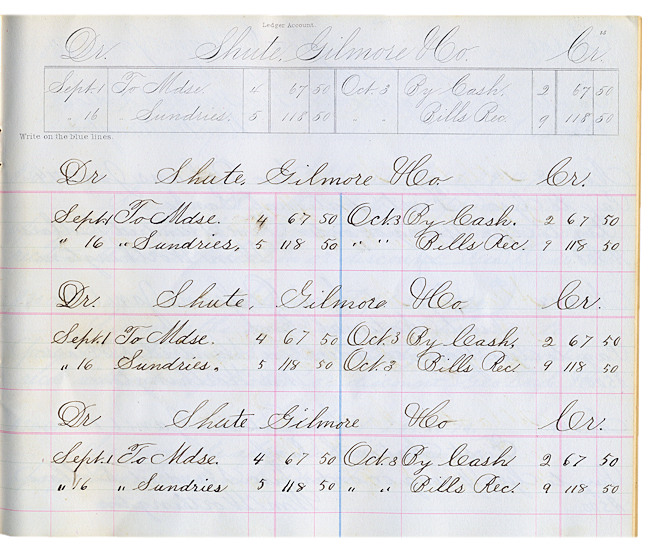 Ledger Account.
Dr. Shute, Gilmore & Co. Cr.
Sept. 1 To Mdse. 4 67 50 Oct. 3 By Cash. 2 67 50
" 16 " Sundries. 5 118 50 " " Bills Rec. 9 118 50
Write on the blue lines.
Dr Shute, Gilmore & Co. Cr.
Sept. 1 To Mdse. 4 67 50 Oct. 3 By Cash. 2 67 50
" 16 " Sundries. 5 118 50 " " Bills Rec. 9 118 50
Dr. Shute, Gilmore & Co. Cr.
Sept. 1 To Mdse. 4 67 50 Oct. 3 By Cash. 2 67 50
" 16 Sundries. 5 118 50 Oct. 3 Bills Rec. 9 118 50
Dr Shute Gilmore & Co Cr.
Sept. 1 To Mdse. 4 67 50 Oct. 3 By Cash 2 67 50
" 16 " Sundries 5 118 50 " " Bills Rec. 9 118 50